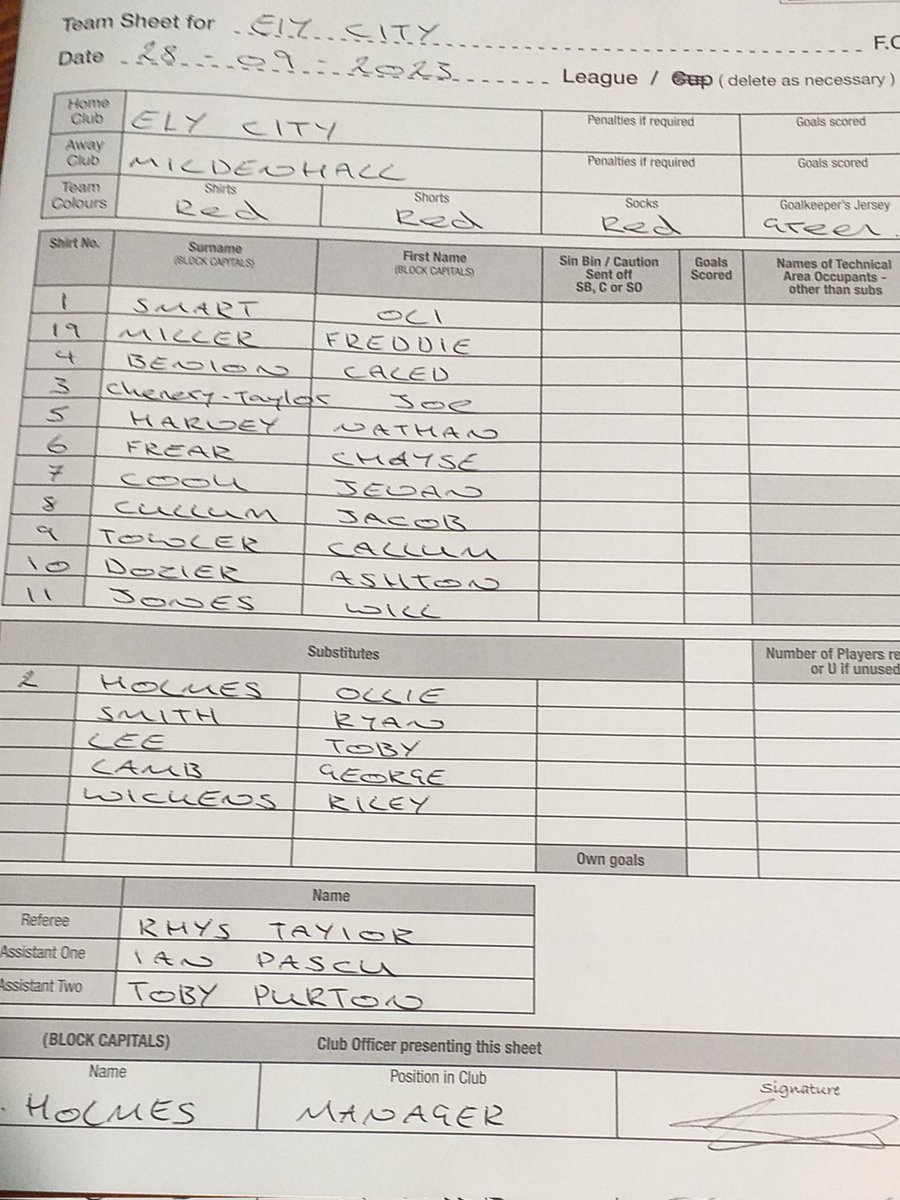 Team Sheet for ELY CITY F.C
Date 28-09-2025 League / Cup ( delete as necessary )
Home Club ELY CITY Penalties if required Goals scored
Away Club MILDENHALL Penalties if required Goals scored
Team Colours Shirts Red Shorts Red Socks Red Goalkeeper's Jersey Green
Shirt No. Surname (BLOCK CAPITALS) First Name (BLOCK CAPITALS) Sin Bin / Caution Sent off SB, C or SO Goals Scored Names of Technical Area Occupants - other than subs
1 SMART OLI
19 MILLER FREDDIE
4 BENION CALEB
3 Chenery-Taylor JOE
5 HARVEY NATHAN
6 FREAR CHAYSE
7 COOK JEVAN
8 CULLUM JACOB
9 TOWLER CALLUM
10 DOZIER ASHTON
11 JONES WILL
Substitutes Number of Players re
or U if unused
2 HOLMES OLLIE
SMITH RYAN
LEE TOBY
LAMB GEORGE
WICKENS RILEY
Own goals
Name
Referee RHYS TAYLOR
Assistant One IAN PASCU
Assistant Two TOBY PURTON
(BLOCK CAPITALS) Club Officer presenting this sheet
Name Position in Club Signature
HOLMES MANAGER